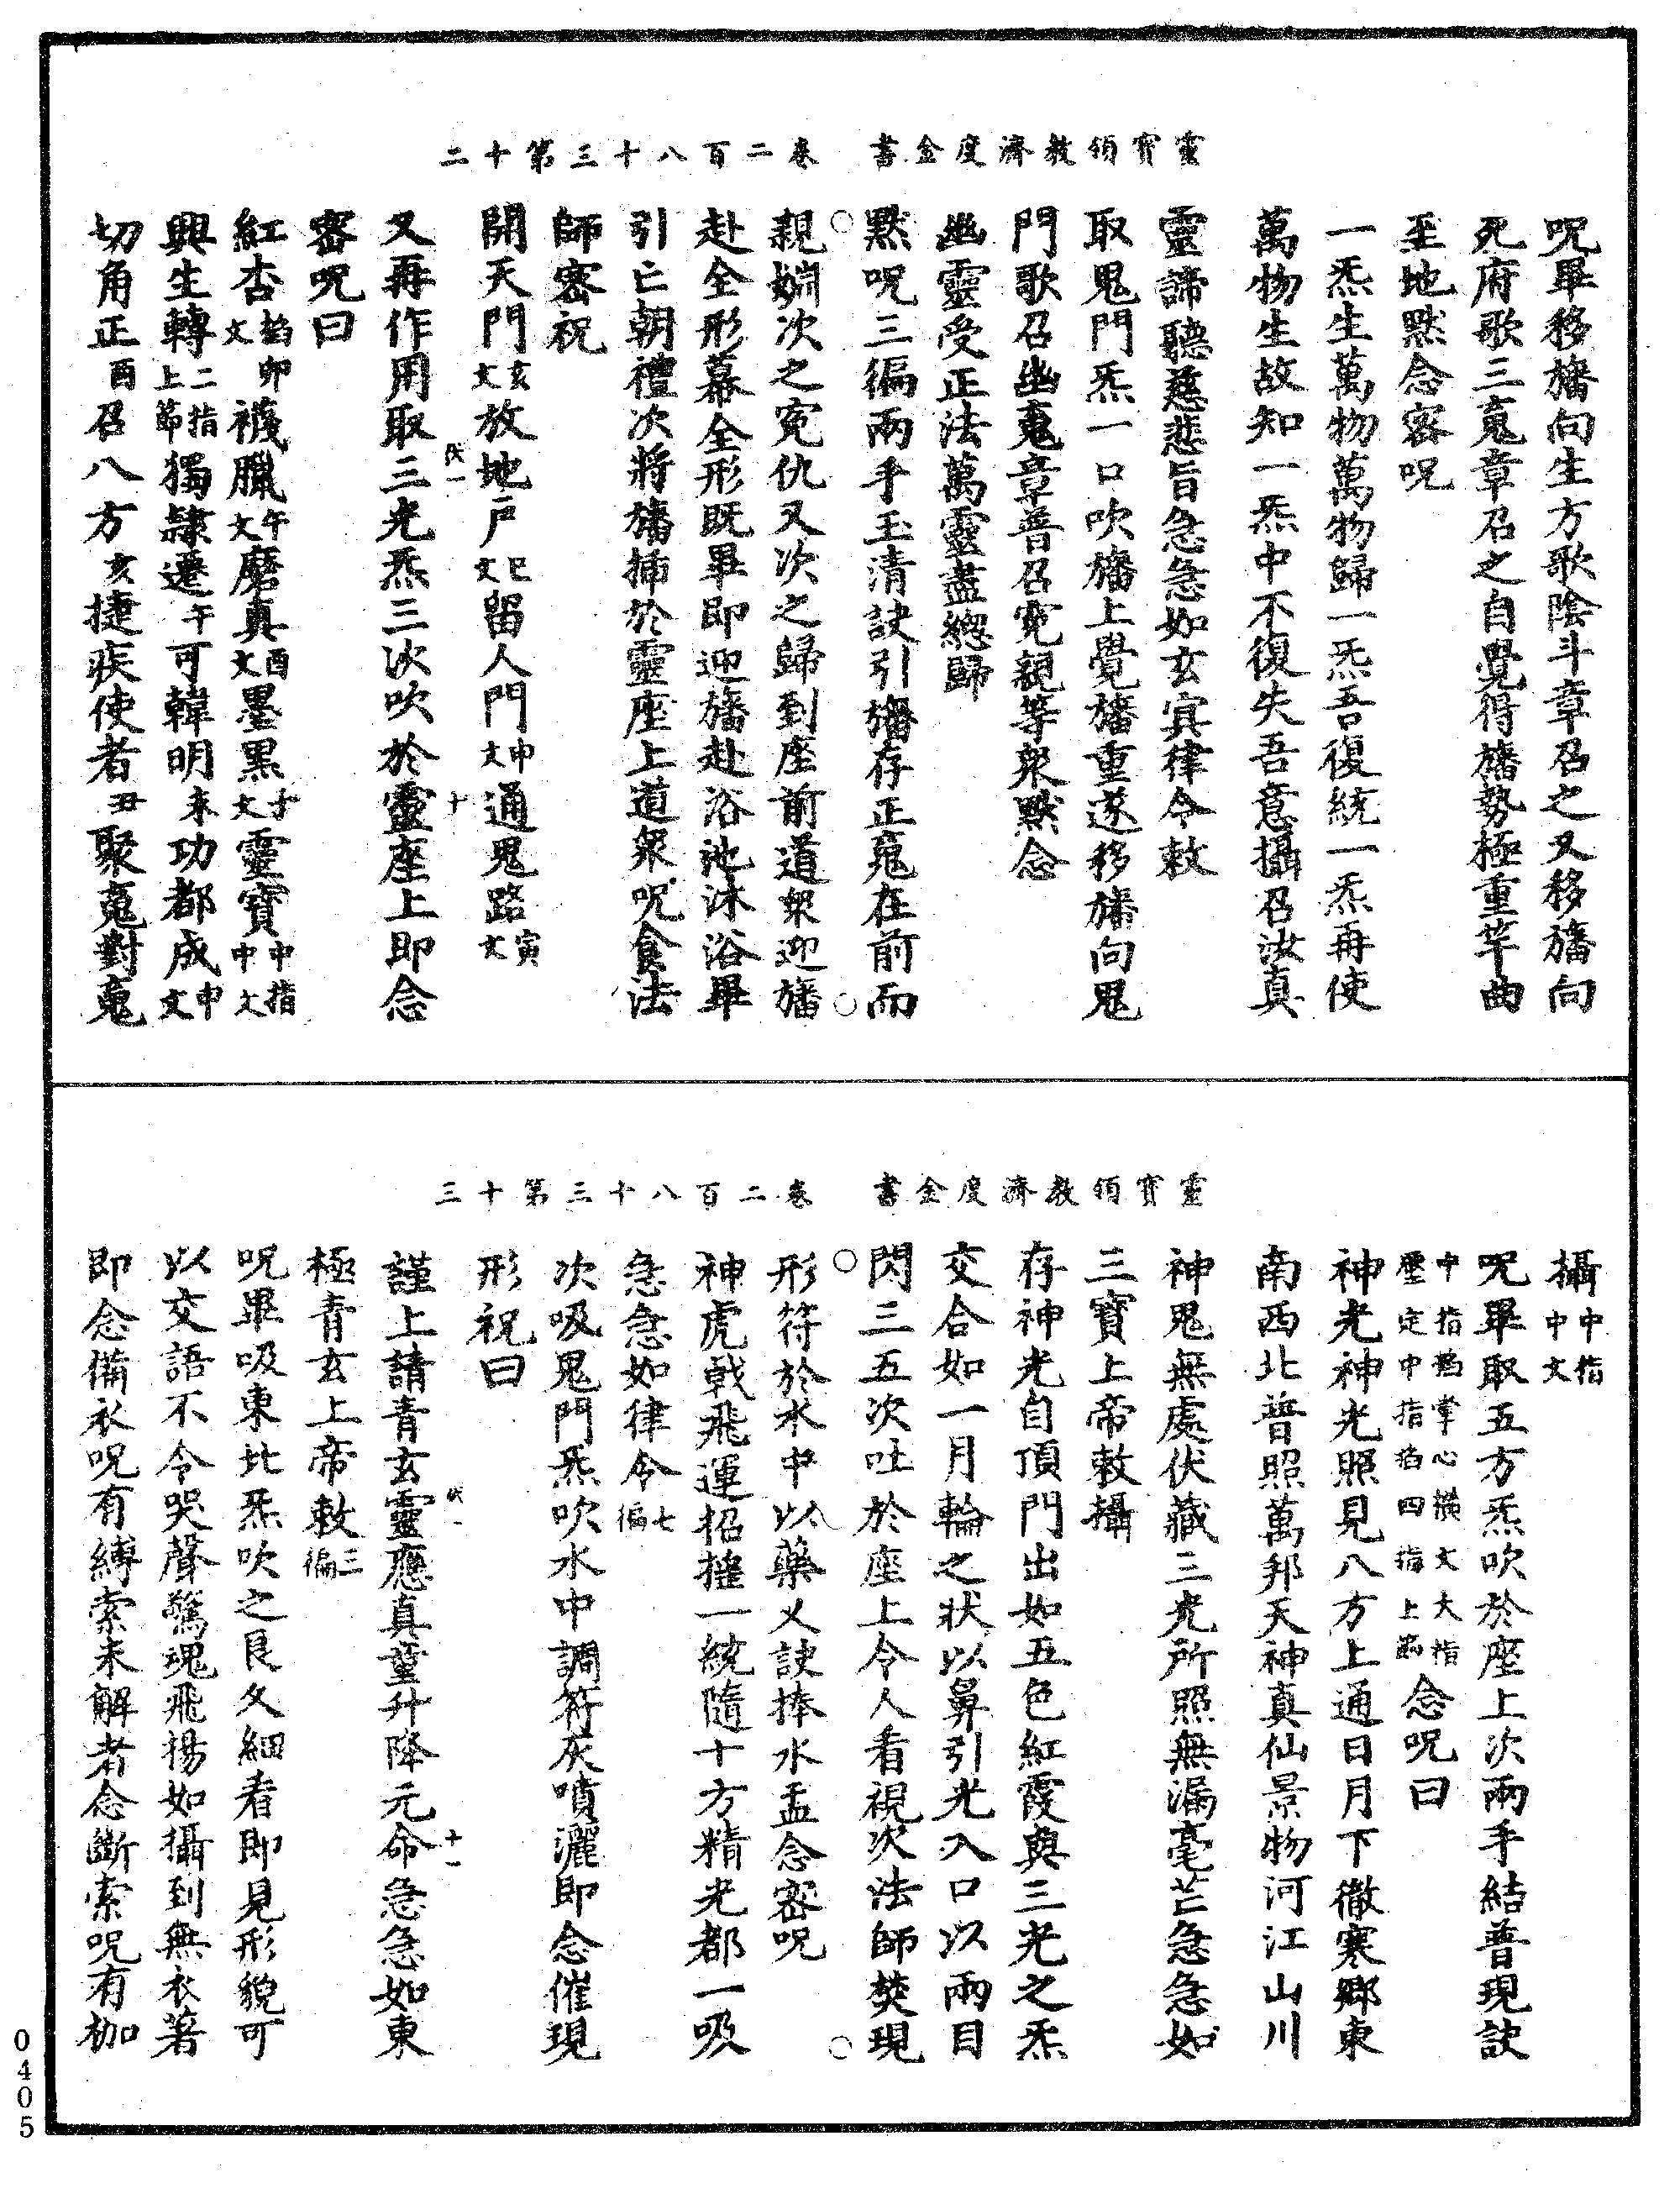 靈寶領教濟度金書　卷二百八十三第十二
呪畢移旛向生方歌陰斗章召之又移旛向
死府歌三魂章召之自覺得旛勢極重竿曲
至地默念密呪
一炁生萬物萬物歸一炁吾復統一炁再使
萬物生故知一炁中不復失吾意攝召汝真
靈諦聽慈悲旨急急如玄冥律令敕
取鬼門炁一口吹旛上覺旛重遂移旛向鬼
門歌召幽魂章普召冤親等衆默念
幽靈受正法萬靈盡總歸
默呪三徧兩手玉清訣引旛存正魂在前而
親姻次之寃仇又次之歸到座前道衆迎旛
赴全形幕全形既畢即迎旛赴浴池沐浴畢
引亡朝禮次將旛揷於靈座上道衆呪食法
師密祝
開天門亥文放地戶巳文留人門申文通鬼路寅文
又再作用取三光炁三次吹於靈座上即念
密呪曰
紅杏掐卯文襪臘午文磨真酉文墨黑子文靈寶中指中文
興生轉二指上節獨隸遷午可韓明未功都成申文
切角正酉召八方亥捷疾使者丑聚魂對魂
伏一
十
靈寶領教濟度金書　卷二百八十三第十三
攝中指中文
呪畢取五方炁吹於座上次兩手結普現訣
中指掐掌心橫文大指壓定中指掐四指上節念呪曰
神光神光照見八方上通日月下徹寒鄉東
南西北普照萬邦天神真仙景物河江山川
神鬼無處伏藏三光所照無漏毫芒急急如
三寶上帝敕攝
存神光自頂門出如五色紅霞與三光之炁
交合如一月輪之狀以鼻引光入口以兩目
閃三五次吐於座上令人看視次法師焚現
形符於水中以藥乂訣捧水盂念密呪
神虎戟飛運招搖一統隨十方精光都一吸
急急如律令七徧
次吸鬼門炁吹水中調符灰噴灑即念催現
形祝曰
謹上請青玄靈應真童升降元命急急如東
極青玄上帝敕三徧
呪畢吸東北炁吹之良久細看即見形貌可
以交語不令哭聲驚瑰飛揚如攝到無衣著
即念備衣呪有縛索未解者念斷索呪有枷
伏一
十一
0405